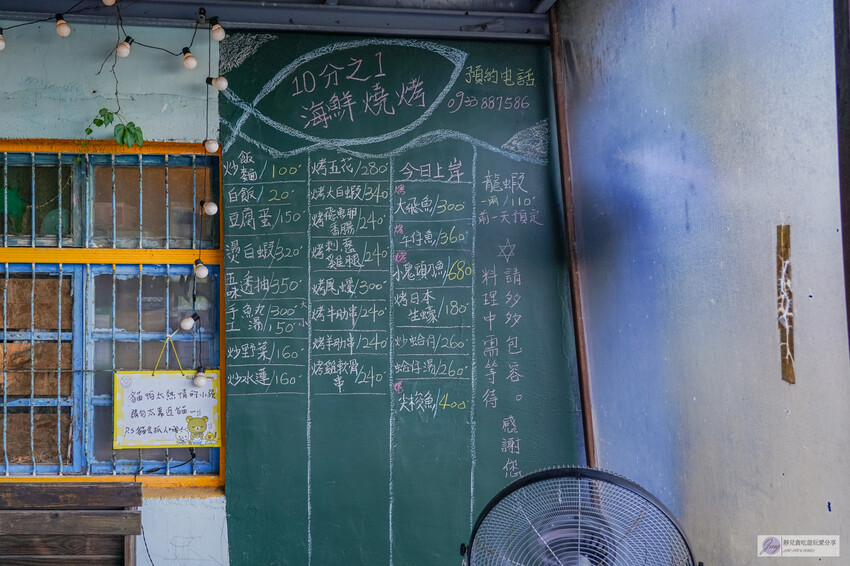 10分之1
海鮮燒烤
預約电話
0933887586
炒飯麵/100
白飯/20
豆腐蛋/150
燙白蝦320
五味透抽350
手工魚丸湯/300大
/150小
炒野菜/160
炒水蓮/160
烤五花/280
烤大白蝦/340
烤飛魚卵香腸/240
烤刺蔥雞腿/240
烤尾螺/300
烤牛肋串/240
烤羊肋串/240
烤雞軟骨串/240
今日上岸
烤
大飛魚/300
烤
午仔魚/360
小鬼頭刀魚/680
烤日本生蠔/180
炒蛤仔/260
蛤仔湯/260
尖梭魚/400
龍蝦
一兩/110
前一天預定
請多多包容。
料理中需等待
感謝您
貓怕太熱情的小孩
請勿太靠近貓
P.S貓會抓人
靜兒貪吃遊玩愛分享